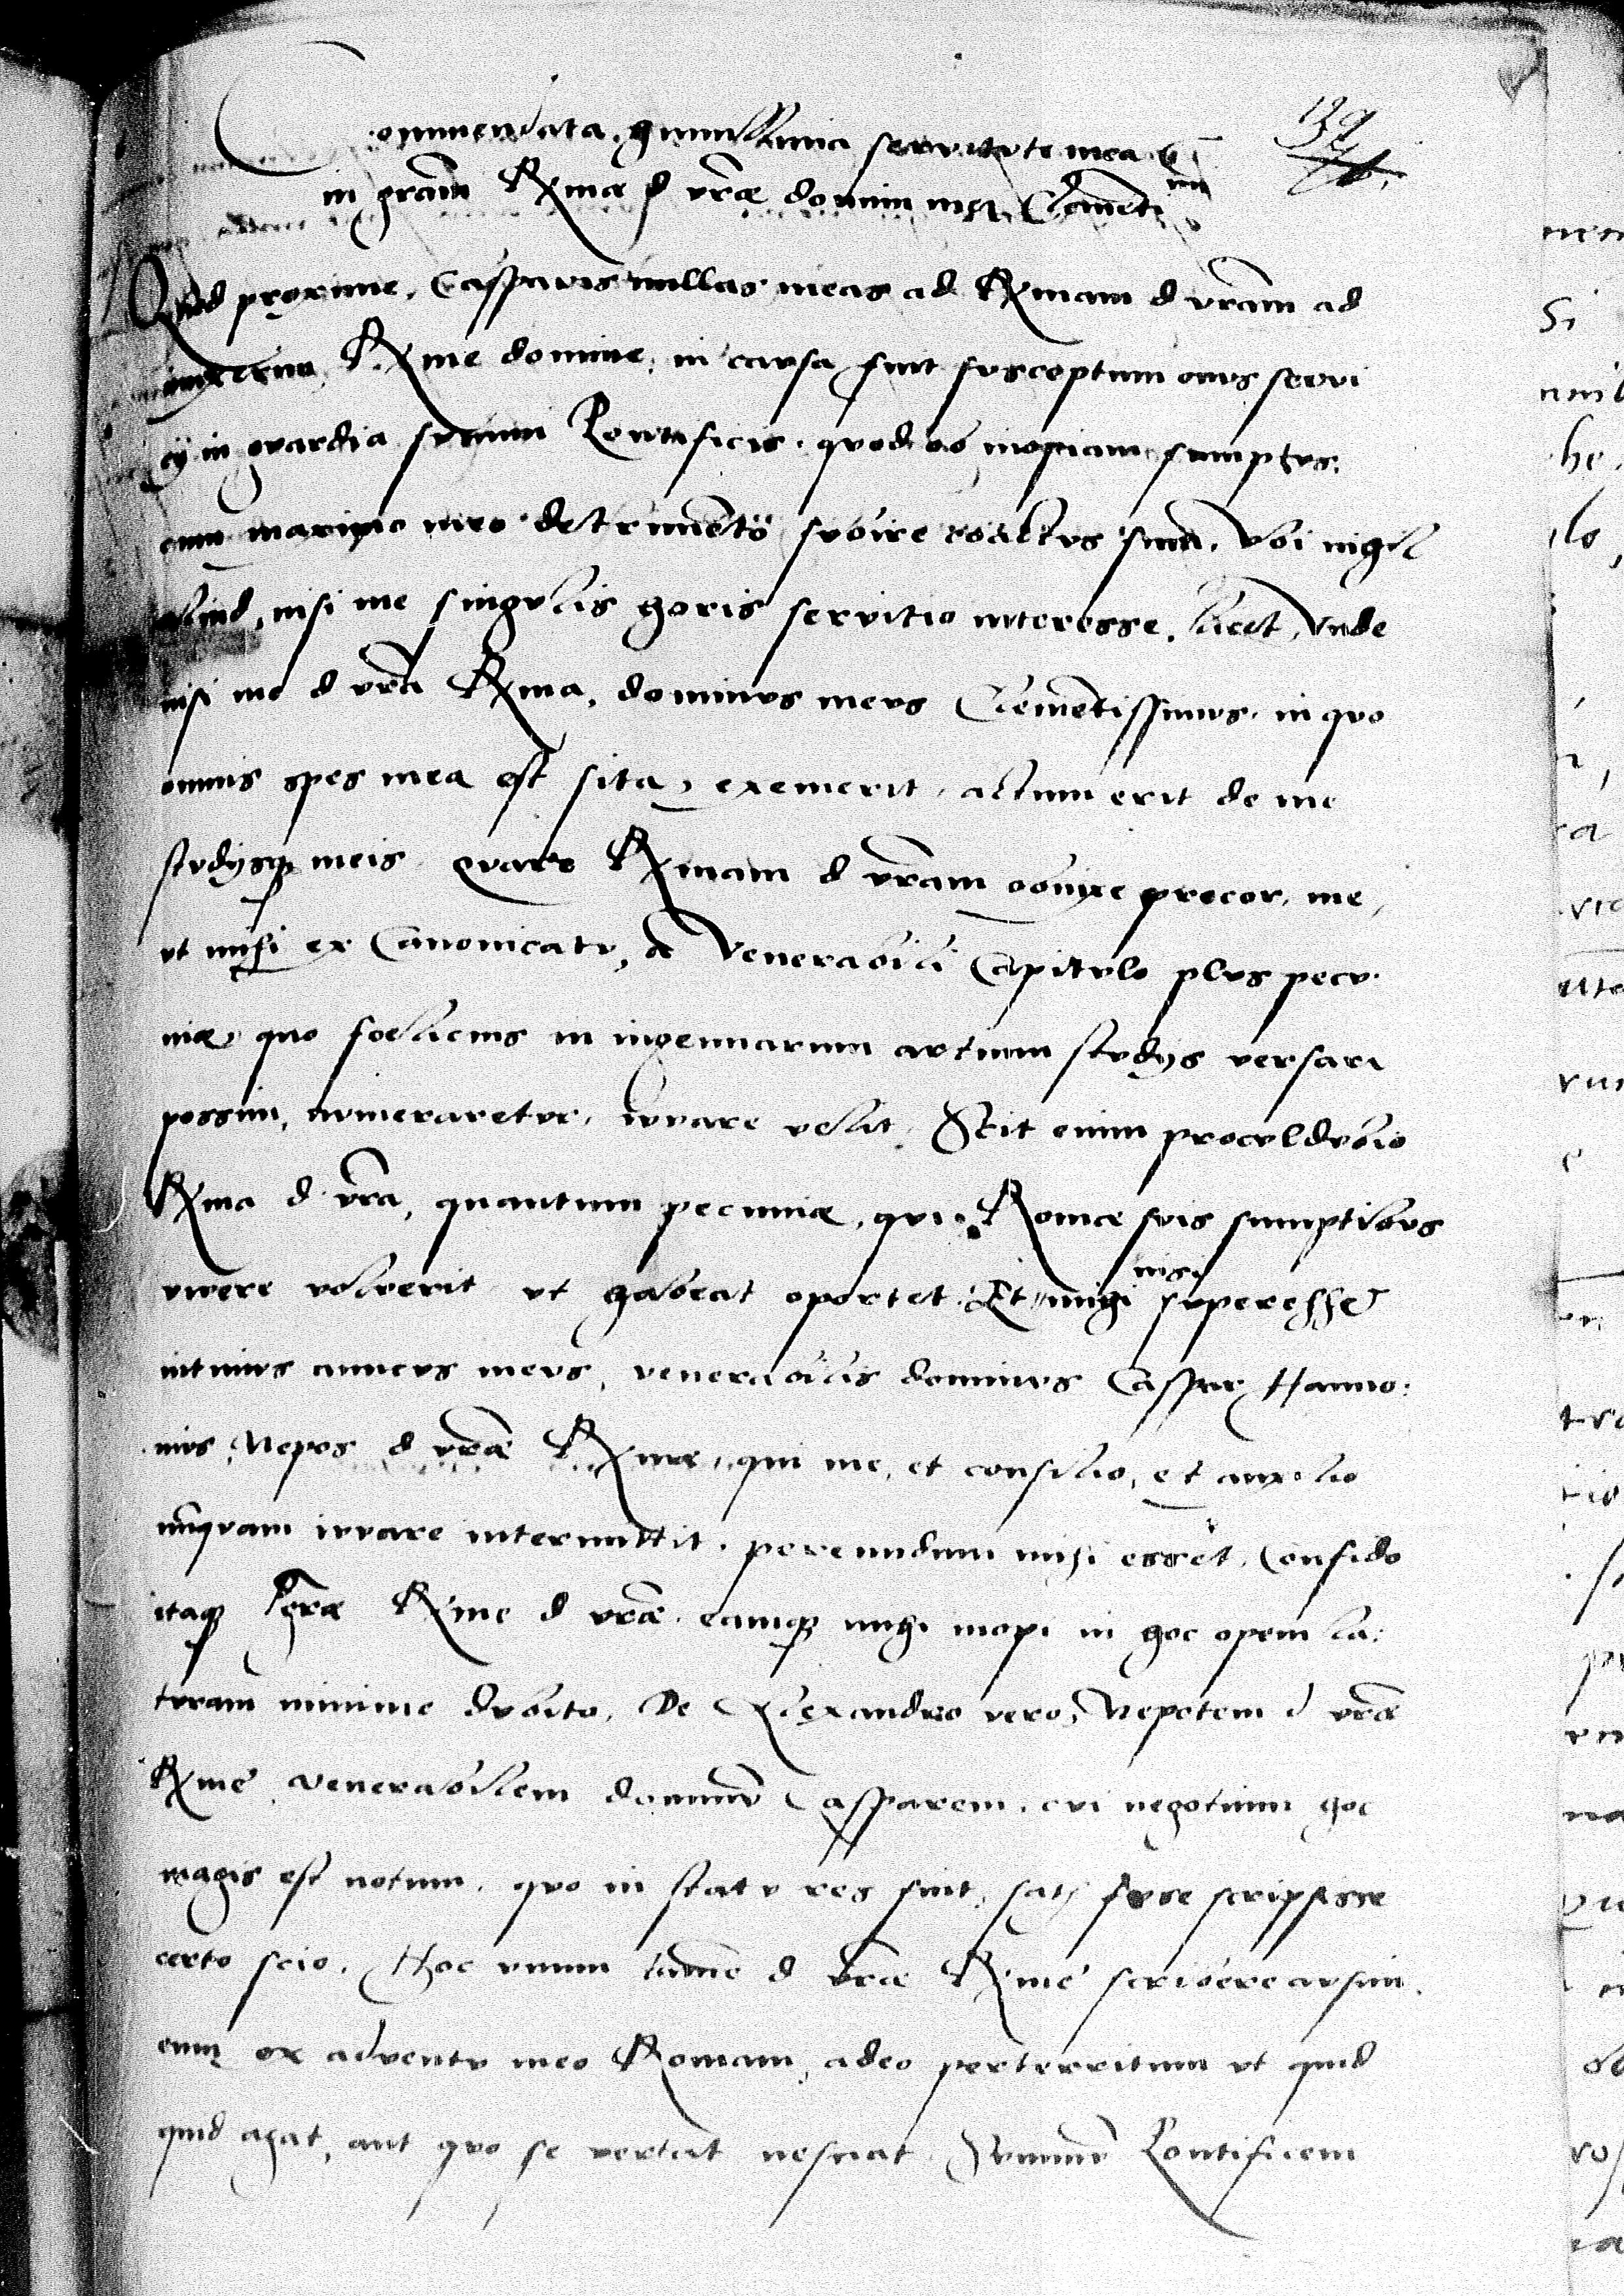 Commendata humillima servitute mea
in grãm Rxmae d vrãe domini mei Clementi
mi
139
Quod proxime, Casparis nullas meas ad Rxmam d vram ad
iunxerim, Rxme domine, in causa fuit susceptum onus servi
cÿ in gvardia summi Pontificis. quod ob inopiam sumptus,
cum maximo meo detrimento subire coactus sum. Vbi nihil
aliud, nisi me singvlis horis servitio interesse, licet, vnde
nisi me d vrã Rxma, dominvs mevs Clementissimvs, in quo
omnis spes mea est sita, exemerit, actum erit de me
stvdÿsq meis. Qvare Rxmam d vram obnixe precor, me,
vt mihi ex Canonicatv, a Venerabili Capitvlo plvs pecv-
niae, quo foelicius in ingenuarum artium stvdÿs versari
possim, nvmeraretvr, ivvare velit. Scit enim procvldvbio
Rxma d vrã, quantum pecuniae, qui Romae svis sumptibvs
vivere volverit vt habeat oportet. Et mihi superesset
nisi
intimvs amicvs mevs, venerabilis dominvs Caspar Hanno:
nivs, Nepos d vrãe Rxmae, qui me, et consilio, et auxilio
nunqvam ivvare intermittit, pereundum mihi esset. Confido
itaq Rxme d vrãe, eamq mihi inopi in hoc opem la:
tvram minime dvbito. De Alexandro vero, Nepotem d vrãe
Rxme, venerabilem dominũ Casparem, cvi negotium hoc
magis est notum, qvo in statv res sint, satis fvse scripsisse
certo scio. Hoc vnum tamẽ d vrãe Rxme scribere avsim,
eum ex adventv meo Romam, adeo perterritum vt quid
quid agat, aut qvo se vertat nesciat. Svmmũ Pontificem